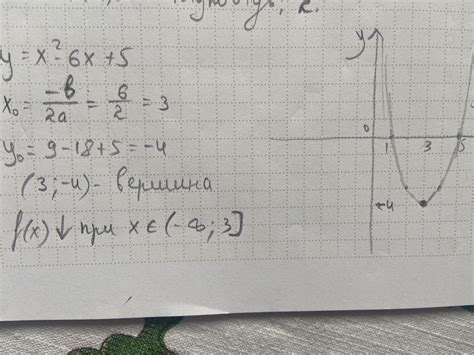 y = x² - 6x + 5
x₀ = -b/2a = 6/2 = 3
y₀ = 9 - 18 + 5 = -4
(3; -4) - вершина
f(x) ↓ при x ∈ (-∞; 3]
y
0 1 3 5
-4